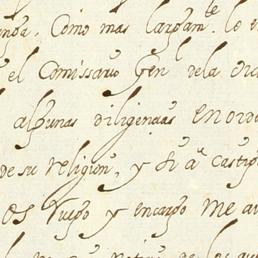 Como mas largam.te lo
el Comissario Gen.l de la
algunas diligencias en orde
de su religion, y su a castig
os ruego y encargo me au